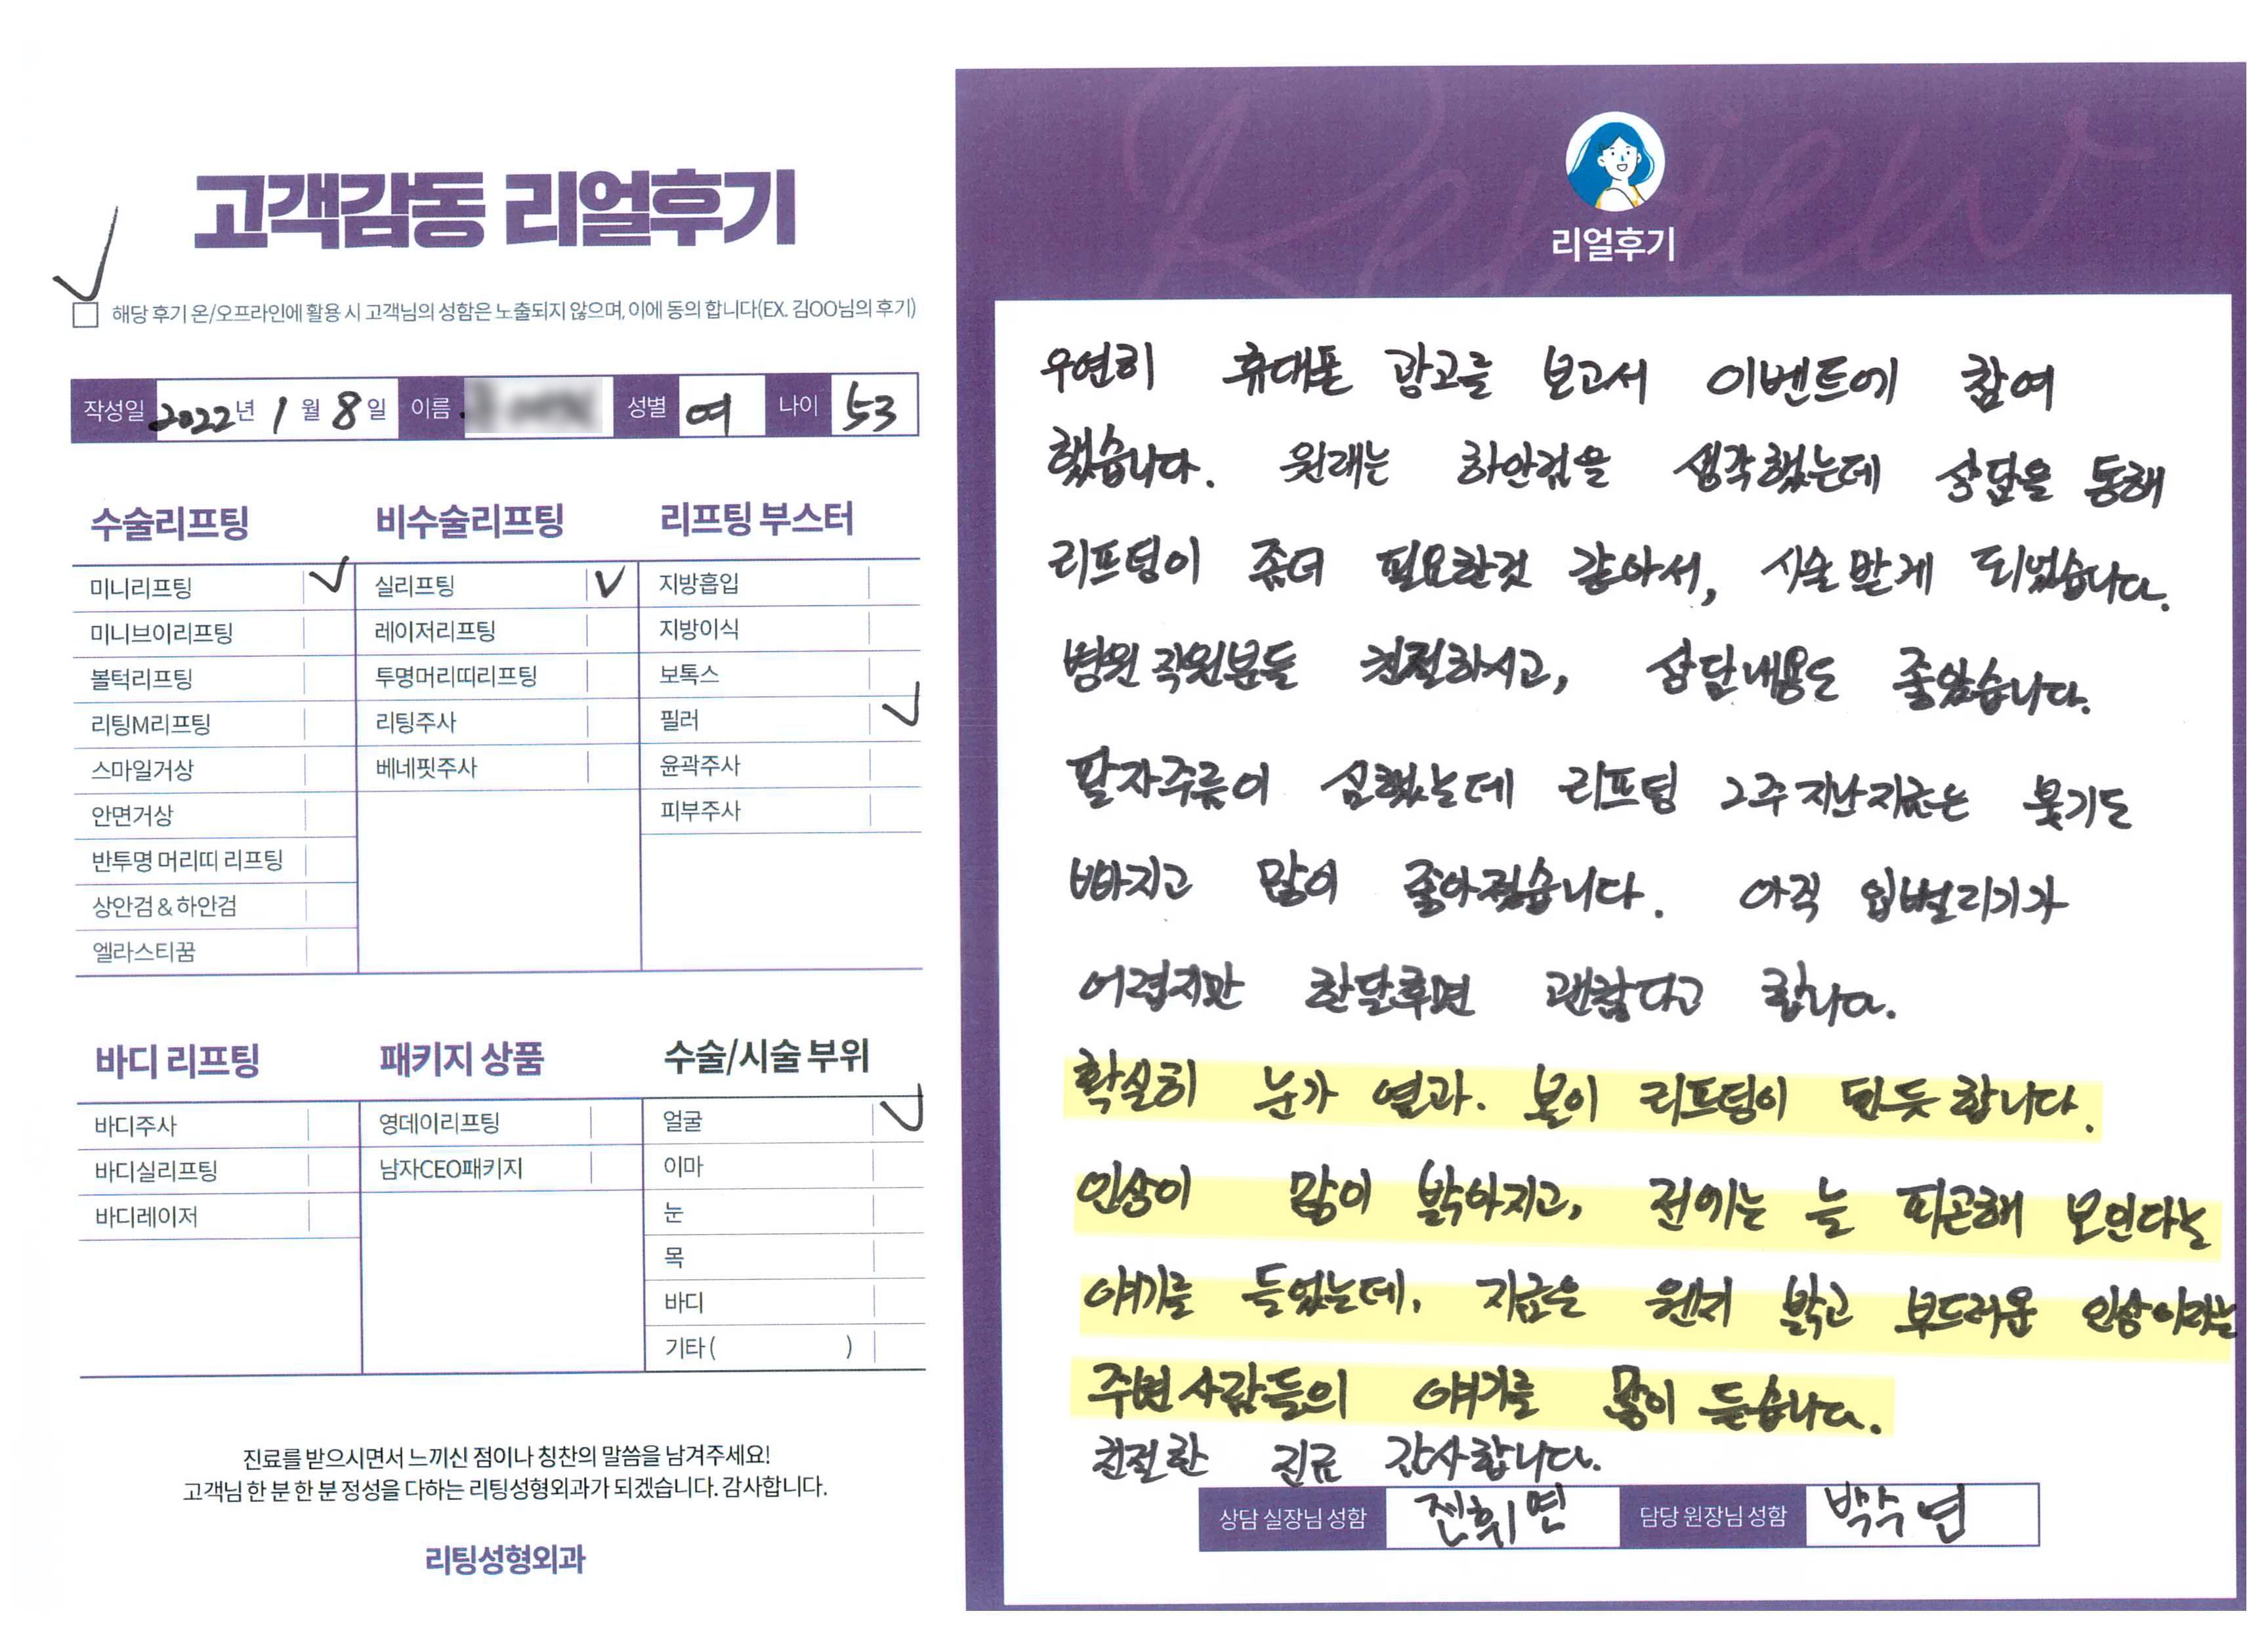 고객감동 리얼후기
해당 후기 온/오프라인에 활용 시 고객님의 성함은 노출되지 않으며, 이에 동의 합니다(EX. 김OO님의 후기)
작성일 2022년 1월 8일 이름 성별 여 나이 53
수술리프팅
미니리프팅
미니브이리프팅
볼턱리프팅
리팅M리프팅
스마일거상
안면거상
반투명 머리띠 리프팅
상안검 & 하안검
엘라스티꿈
비수술리프팅
실리프팅
레이저리프팅
투명머리띠리프팅
리팅주사
베네핏주사
리프팅 부스터
지방흡입
지방이식
보톡스
필러
윤곽주사
피부주사
바디 리프팅
바디주사
바디실리프팅
바디레이저
패키지 상품
영데이리프팅
남자CEO패키지
수술/시술 부위
얼굴
이마
눈
목
바디
기타( )
진료를 받으시면서 느끼신 점이나 칭찬의 말씀을 남겨주세요!
고객님 한 분 한 분 정성을 다하는 리팅성형외과가 되겠습니다. 감사합니다.
리팅성형외과
Review
리얼후기
우연히 휴대폰 광고를 보고서 이벤트에 참여
했습니다. 원래는 하안검을 생각했는데 상담을 통해
리프팅이 좀더 필요한것 같아서, 시술받게 되었습니다.
병원 직원분들 친절하시고, 상담내용도 좋았습니다.
팔자주름이 심했는데 리프팅 2주 지난지금은 붓기도
빠지고 많이 좋아졌습니다. 아직 입벌리기가
어렵지만 한달후면 괜찮다고 합니다.
확실히 눈가 옆과. 볼이 리프팅이 된듯 합니다.
인상이 많이 밝아지고, 전에는 늘 피곤해 보인다는
얘기를 들었는데, 지금은 웬지 밝고 부드러운 인상이라는
주변 사람들의 얘기를 많이 듣습니다.
친절한 진료 감사합니다.
상담 실장님 성함 전휘면 담당 원장님 성함 박수연